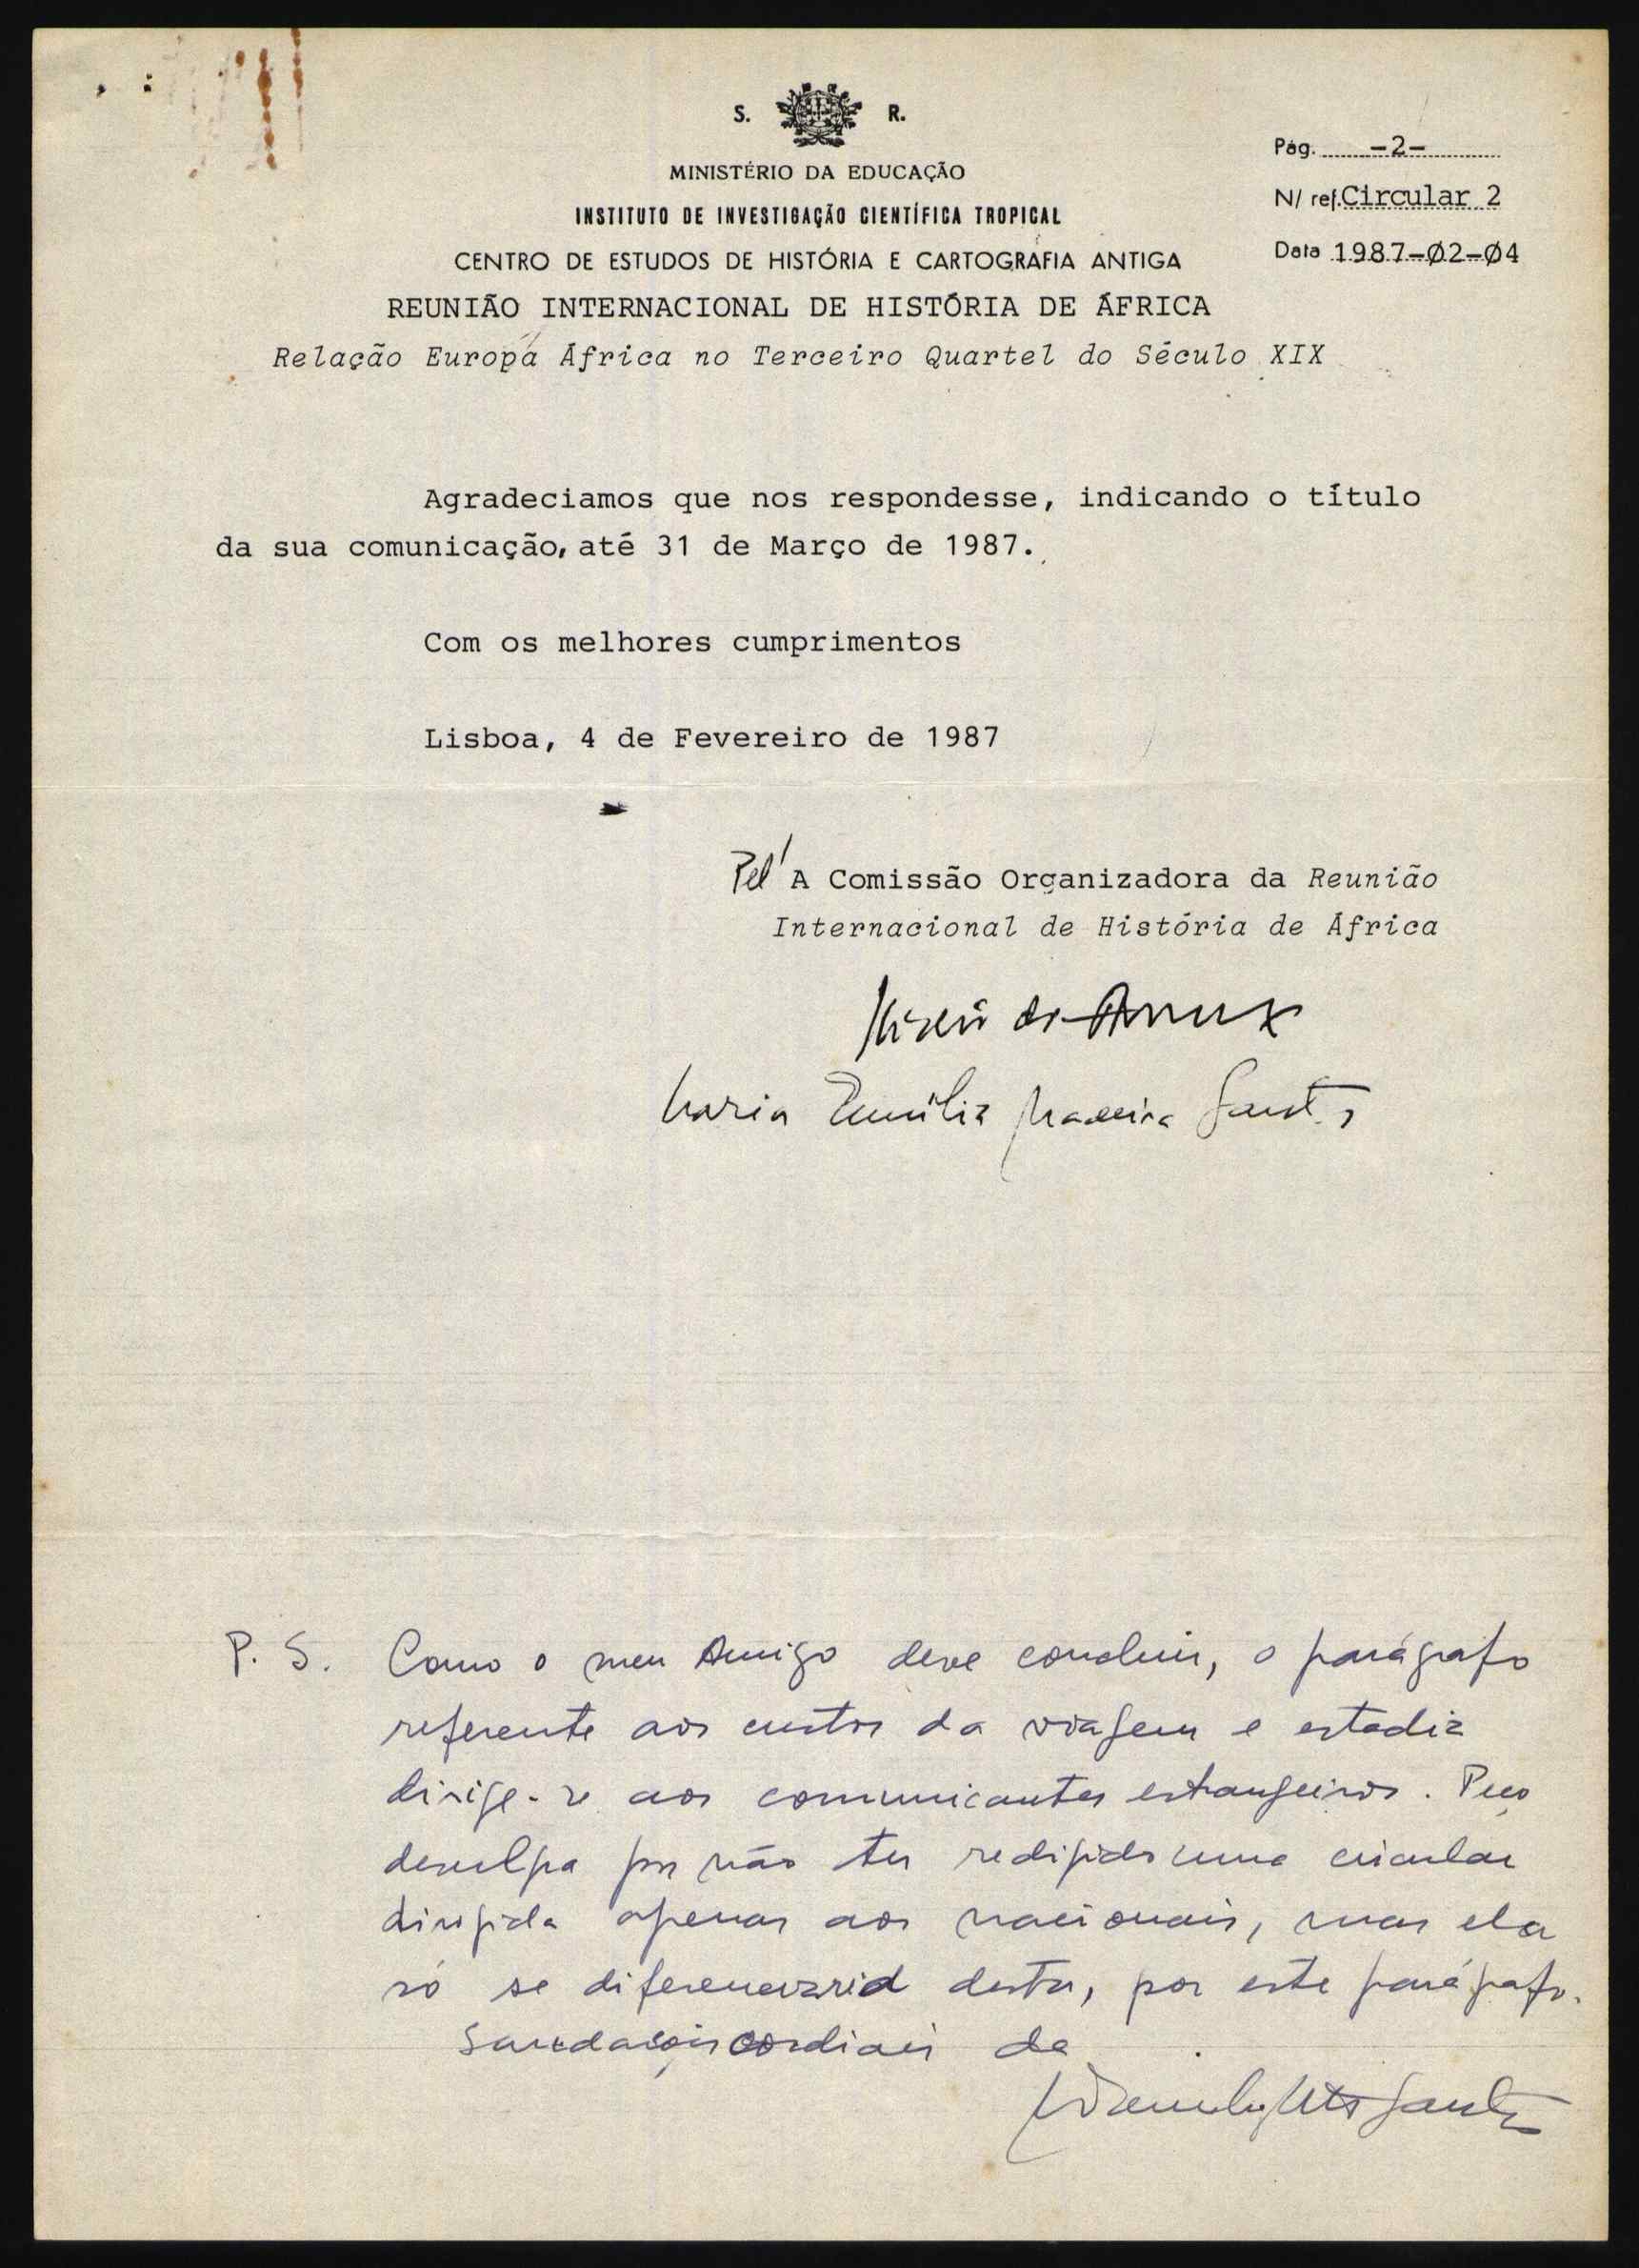 S. R.
MINISTÉRIO DA EDUCAÇÃO
INSTITUTO DE INVESTIGAÇÃO CIENTÍFICA TROPICAL
CENTRO DE ESTUDOS DE HISTÓRIA E CARTOGRAFIA ANTIGA
Pág. -2-
N/ ref. Circular 2
Data 1987-02-04
REUNIÃO INTERNACIONAL DE HISTÓRIA DE ÁFRICA
Relação Europa África no Terceiro Quartel do Século XIX
Agradeciamos que nos respondesse, indicando o título
da sua comunicação, até 31 de Março de 1987.
Com os melhores cumprimentos
Lisboa, 4 de Fevereiro de 1987
Pel' A Comissão Organizadora da Reunião
Internacional de História de África
Maria Emília Madeira Santos
P. S. Como o meu Amigo deve concluir, o parágrafo
referente aos custos da viagem e estadia
dirige-se aos comunicantes estrangeiros. Peço
desculpa por não ter redigido uma circular
dirigida apenas aos nacionais, mas ela
só se diferenciaria desta, por este parágrafo.
Saudações cordiais de
Santos